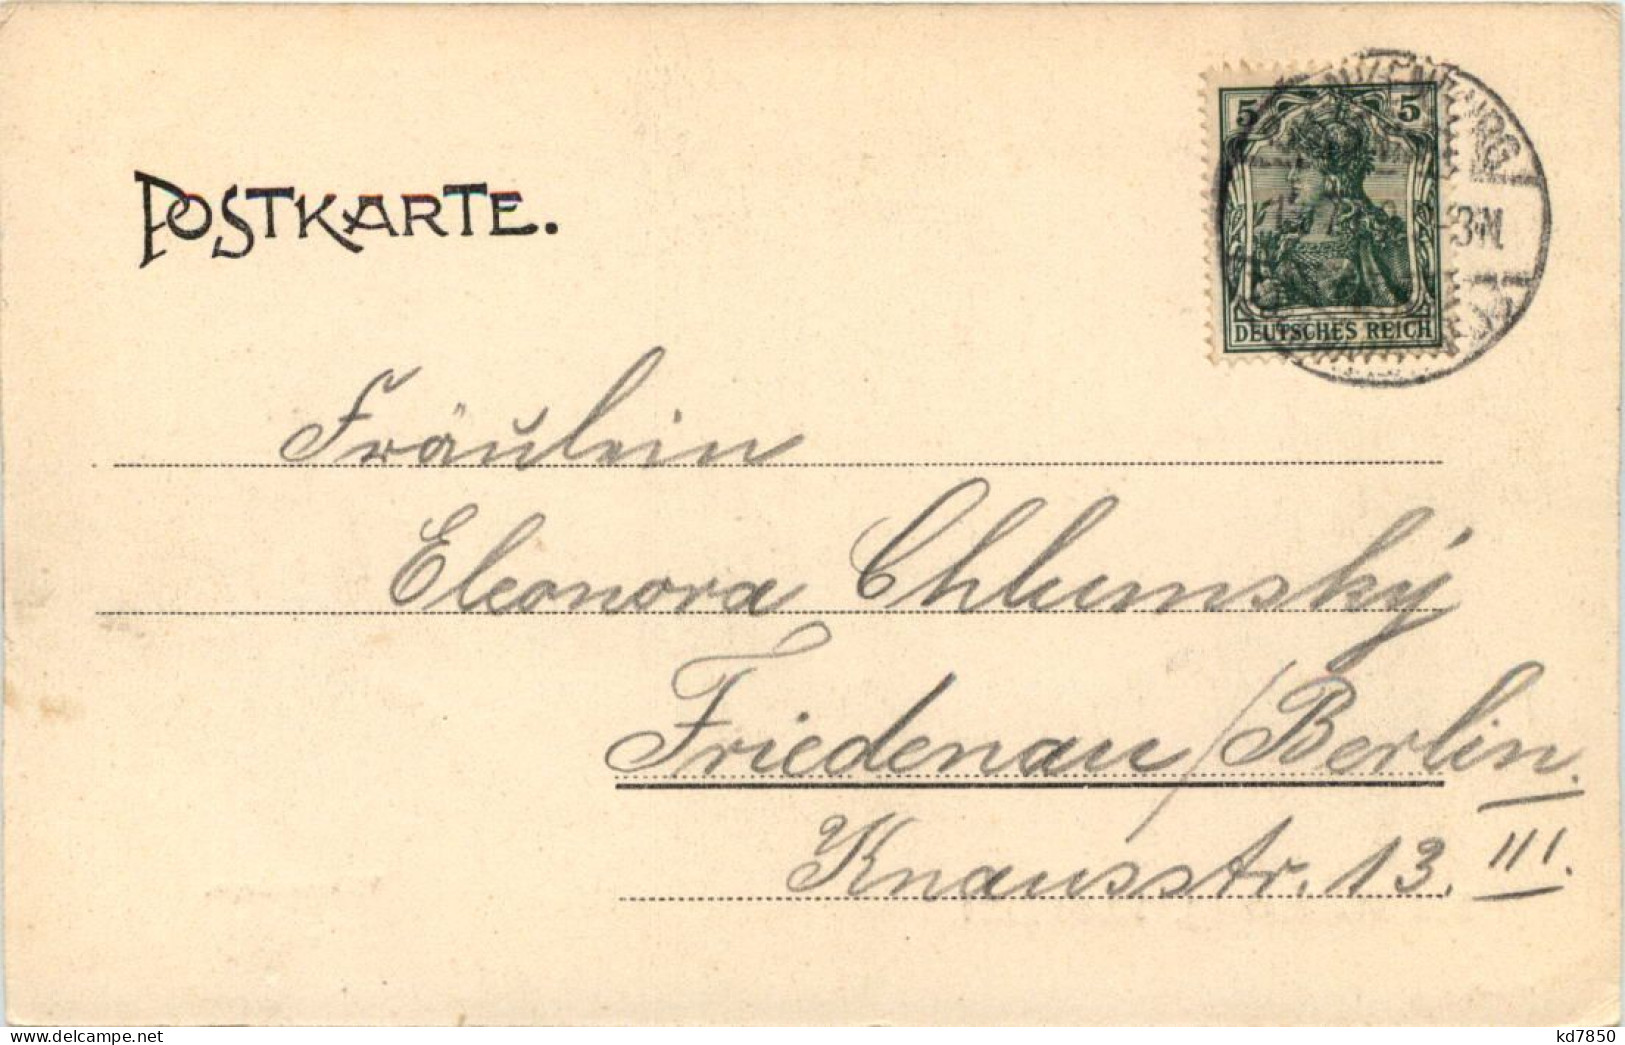 POSTKARTE.
5 5
3N
DEUTSCHES REICH
Fräulein
Eleonora Chlumský
Friedenau/Berlin.
Knausstr. 13. III.
www.delcampe.net
kd7850